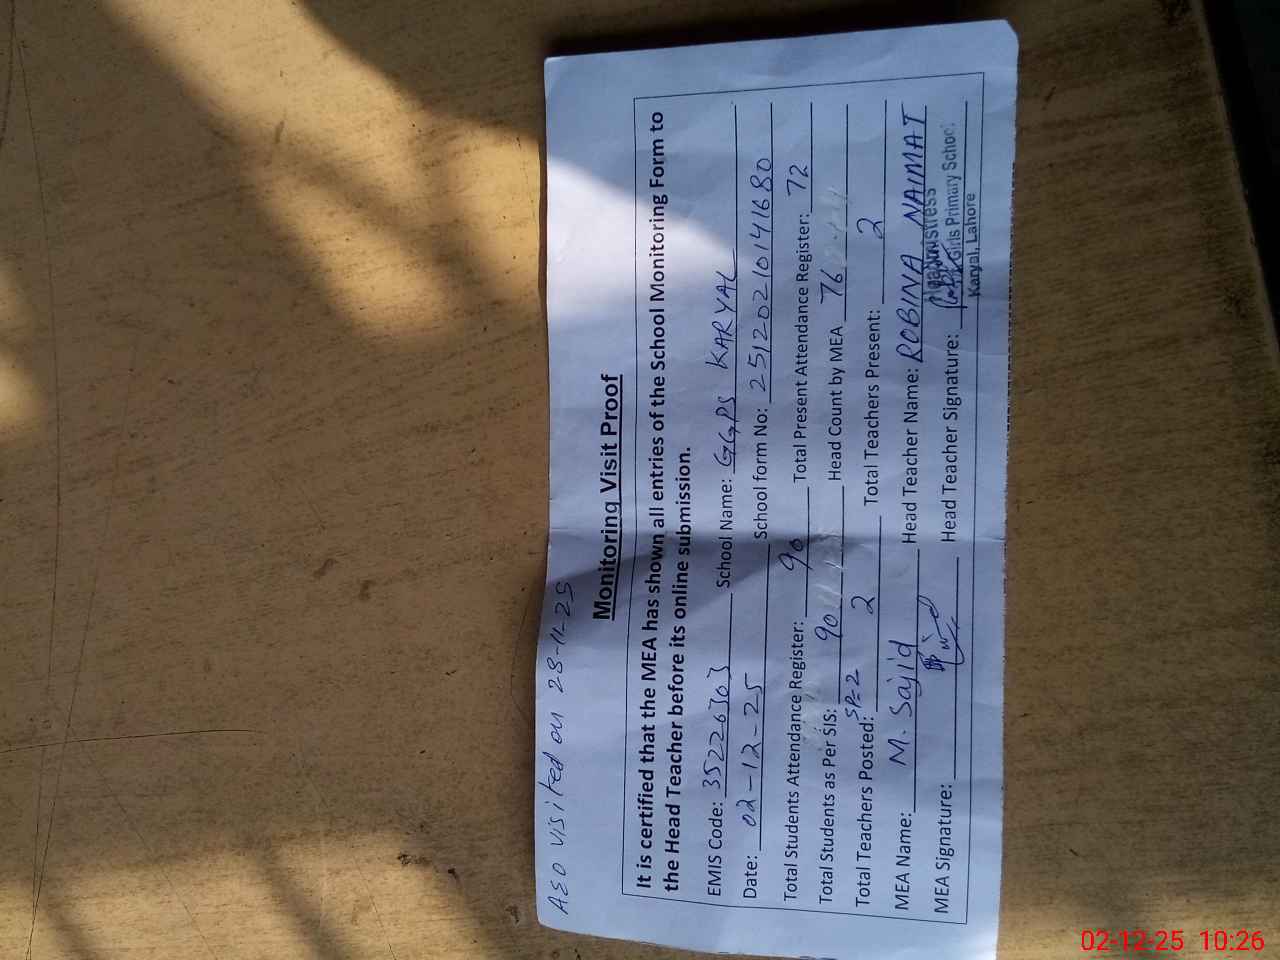 AEO visited on 28-11-25
Monitoring Visit Proof
It is certified that the MEA has shown all entries of the School Monitoring Form to
the Head Teacher before its online submission.
EMIS Code: 35220303 School Name: GGPS KARYAL
Date: 02-12-25 School form No: 2512021014680
Total Students Attendance Register: 90 Total Present Attendance Register: 72
Total Students as Per SIS: 90 Head Count by MEA 76
Total Teachers Posted: SP=2 2 Total Teachers Present: 2
MEA Name: M. Sajid Head Teacher Name: ROBINA NAIMAT
MEA Signature: Head Teacher Signature:
Headmistress
Girls Primary School
Karyal, Lahore
02-12-25 10:26